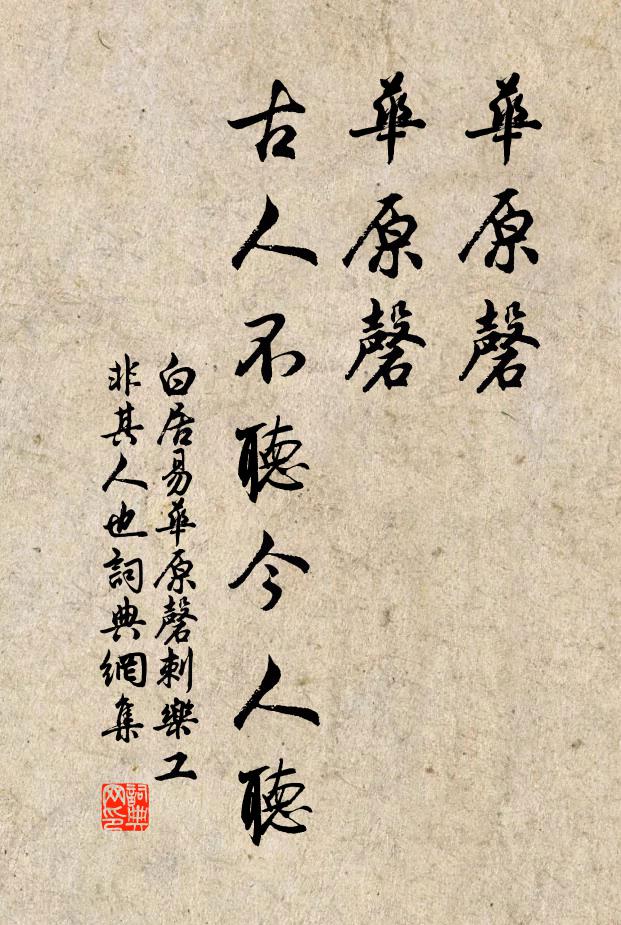 華原磬
華原磬
古人不聽今人聽
白居易華原磬刺樂工
非其人也詞典網集
詞典
网印